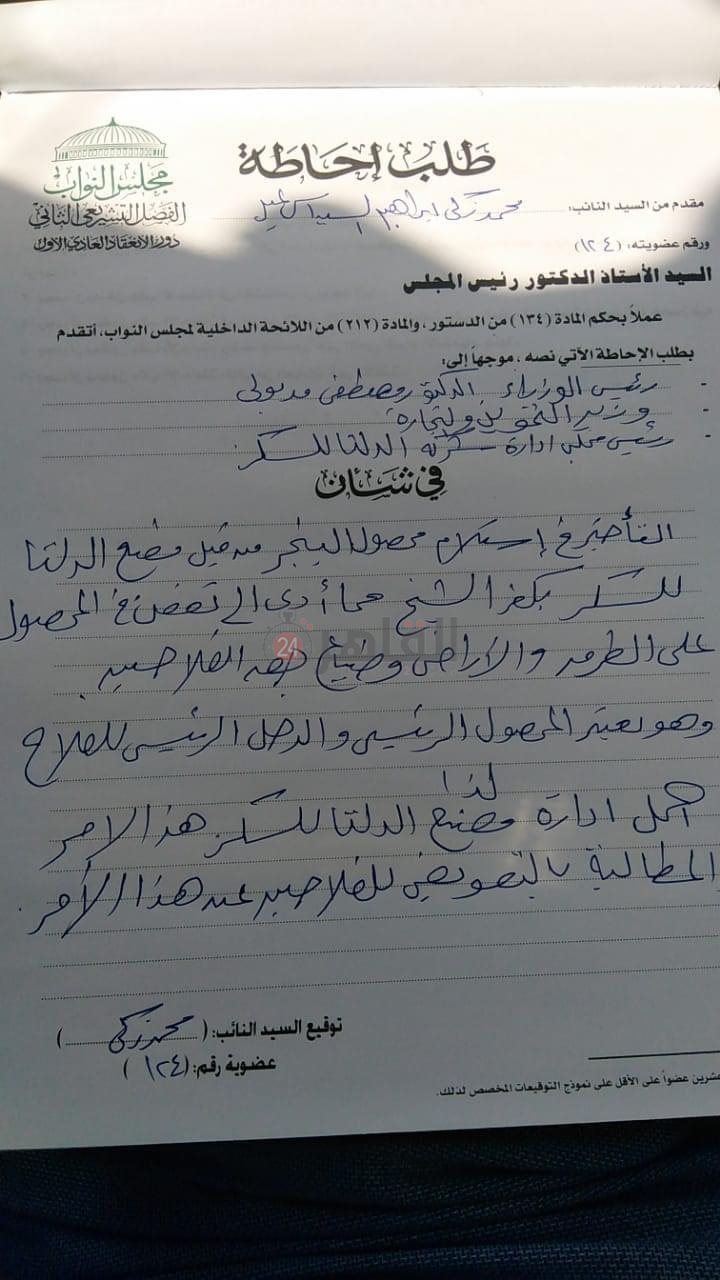 طلب إحاطة
مجلس النواب
الفصل التشريعى الثانى
دور الانعقاد العادى الأول
مقدم من السيد النائب: محمد زكى ابراهيم السيد اسماعيل
ورقم عضويته: (١٢٤)
السيد الأستاذ الدكتور رئيس المجلس
عملاً بحكم المادة (١٣٤) من الدستور، والمادة (٢١٢) من اللائحة الداخلية لمجلس النواب، أتقدم
بطلب الإحاطة الآتي نصه ، موجهاً إلى:
- رئيس الوزراء الدكتور مصطفى مدبولى
- وزير التموين والتجارة
- رئيس مجلس ادارة شركة الدلتا للسكر
في شأن
التأخير فى إستلام محصول البنجر من قبل مصنع الدلتا
للسكر بكفر الشيخ مما أدى الى تعفن فى المحصول
على الطرق والاراضى وضياع حق الفلاحين
وهو يعتبر المحصول الرئيسى والدخل الرئيسى للفلاح
لذا
احمل ادارة مصنع الدلتا للسكر هذا الامر
المطالبة بالتعويض للفلاحين عن هذا الأمر.
توقيع السيد النائب: (محمد زكى)
عضوية رقم: (١٢٤)
عشرين عضواً على الأقل على نموذج التوقيعات المخصص لذلك.
القاهرة 24